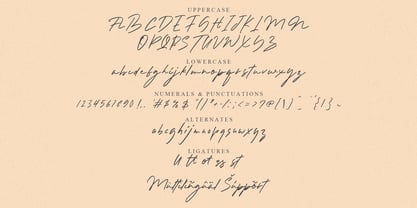 UPPERCASE
A B C D E F G H I J K L M N
O P Q R S T U V W X Y Z
LOWERCASE
a b c d e f g h i j k l m n o p q r s t u v w x y z
NUMERALS & PUNCTUATIONS
ALTERNATES
a b c d e f g h i j k l m n o p q r s t u v w x y z
LIGATURES
Multilingual Support